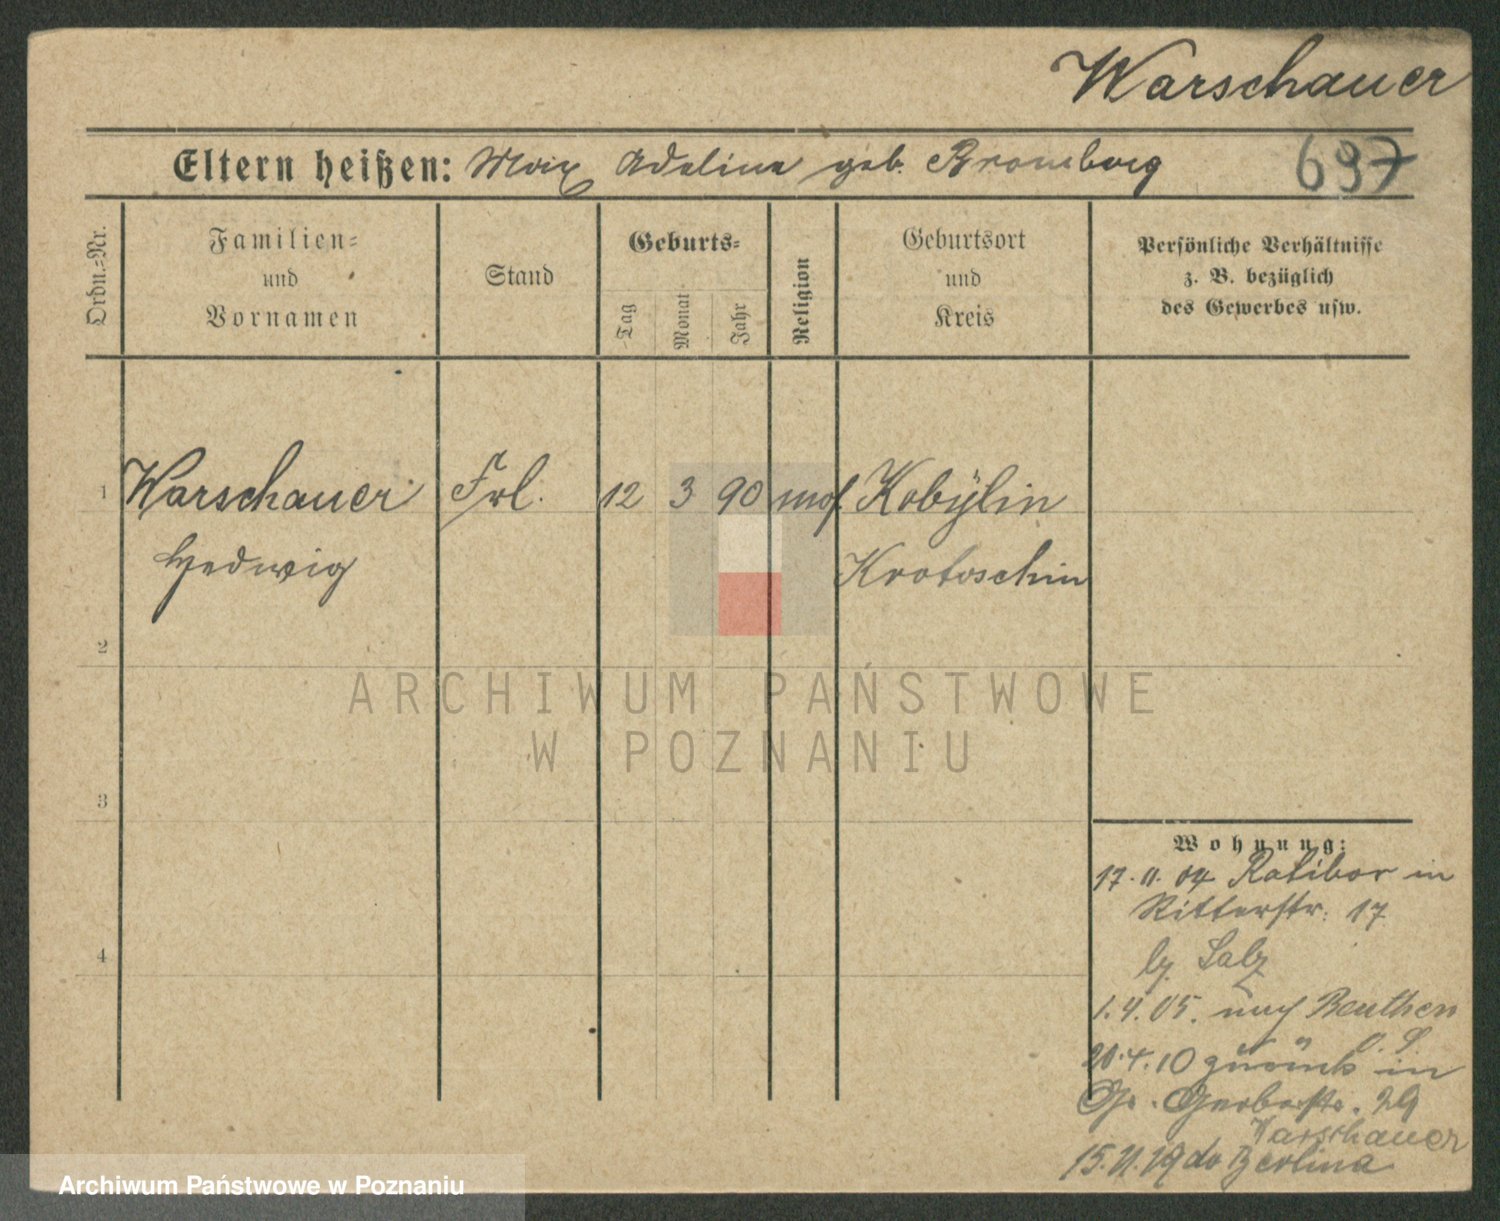 Warschauer
Eltern heißen: Max Adeline geb. Bromberg
697
Ordn.-Nr.
Familien-
und
Vornamen
Stand
Geburts-
Tag
Monat
Jahr
Religion
Geburtsort
und
Kreis
Persönliche Verhältnisse
z. B. bezüglich
des Gewerbes usw.
1 Warschauer Frl. 12 3 90 mos. Kobylin
Hedwig Krotoschin
2
3
4
Wohnung:
17.11.04 Ratibor in
Ritterstr. 17
Salz
1.4.05. nach Beuthen
O. S.
20.4.10 zurück in
Gr. Gerberstr. 29
Warschauer
15.11.19 do Berlina
ARCHIWUM PAŃSTWOWE
W POZNANIU
Archiwum Państwowe w Poznaniu